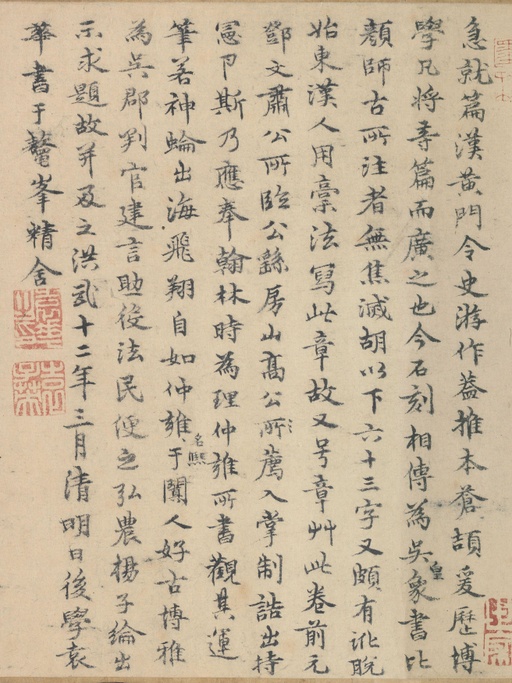 急就篇漢黃門令史游作蓋推本蒼頡爰歷博
學凡將等篇而廣之也今石刻相傳為吳皇象書比
顏師古所注者無焦滅胡以下六十三字又頗有訛脫
始東漢人用稾法寫此章故又号章艸此卷前元
鄧文肅公所臨公繇房山高公所薦入掌制誥出持
憲節斯乃應奉翰林時為理仲雍所書觀其運
筆若神蜦出海飛翔自如仲雍名熙于闐人好古博雅
為吳郡判官建言助役法民便之弘農楊子綸出
示求題故并及之洪武十二年三月清明日後學袁
華書于鼇峯精舍